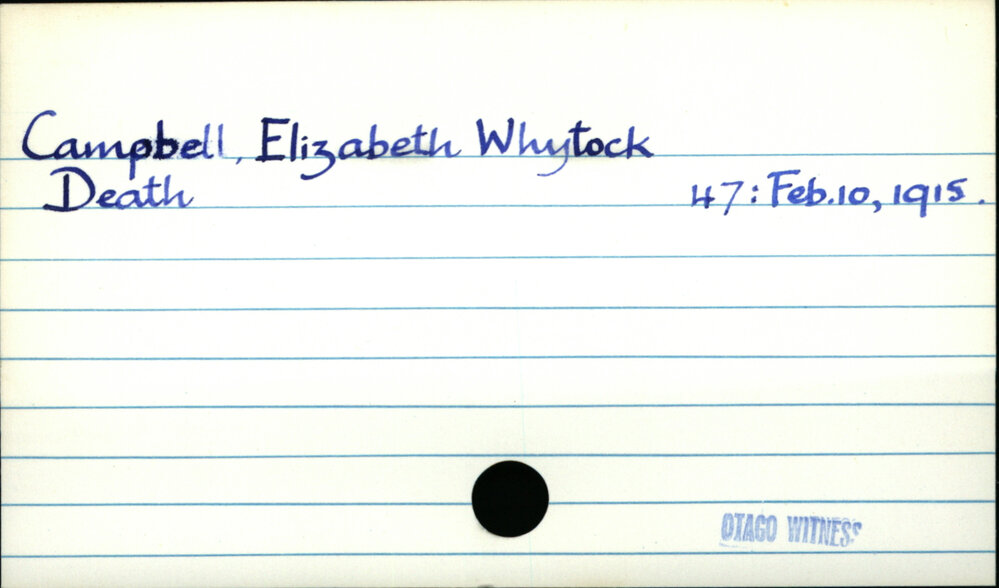 Campbell, Elizabeth Whytock
Death 47: Feb.10, 1915.
OTAGO WITNESS